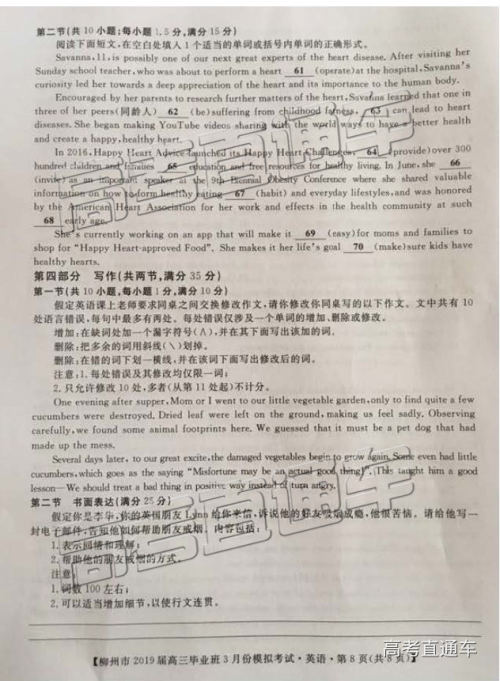 第二节(共 10 小题;每小题 1.5 分,满分 15 分)
阅读下面短文,在空白处填入 1 个适当的单词或括号内单词的正确形式。
Savanna,11,is possibly one of our next great experts of the heart disease. After visiting her
Sunday school teacher,who was about to perform a heart 61 (operate)at the hospital,Savanna's
curiosity led her towards a deep appreciation of the heart and its importance to the human body.
Encouraged by her parents to research further matters of the heart,Savanna learned that one in
three of her peers(同龄人) 62 (be)suffering from childhood fatness, 63 can lead to heart
diseases. She began making YouTube videos sharing with the world ways to have a better health
and create a happy,healthy heart.
In 2016,Happy Heart Advice launched its Happy Heart Challenge, 64 (provide)over 300
hundred children and families 65 education and free resources for healthy living. In June,she 66
(invite)as an important speaker at the 9th Biennial Obesity Conference where she shared valuable
information on how to form healthy eating 67 (habit) and everyday lifestyles,and was honored
by the American Heart Association for her work and effects in the health community at such
68 early age.
She's currently working on an app that will make it 69 (easy)for moms and families to
shop for "Happy Heart-approved Food". She makes it her life's goal 70 (make)sure kids have
healthy hearts.
第四部分 写作(共两节,满分 35 分)
第一节(共 10 小题,每小题 1 分,满分 10 分)
假定英语课上老师要求同桌之间交换修改作文,请你修改你同桌写的以下作文。文中共有 10
处语言错误,每句中最多有两处。每处错误仅涉及一个单词的增加、删除或修改。
增加:在缺词处加一个漏字符号(∧),并在其下面写出该加的词.
删除:把多余的词用斜线(\)划掉。
删除:在错的词下划一横线,并在该词下面写出修改后的词。
注意:1. 每处错误及其修改均仅限一词;
2. 只允许修改 10 处,多者(从第 11 处起)不计分。
One evening after supper,Mom or I went to our little vegetable garden,only to find quite a few
cucumbers were destroyed. Dried leaf were left on the ground,making us feel sadly. Observing
carefully,we found some animal footprints here. We guessed that it must be a pet dog that had
made up the mess.
Several days later, to our great excite,the damaged vegetables begin to grow again. Some even had little
cucumbers,which goes as the saying "Misfortune may be an actual good thing". This taught him a good
lesson— We should treat a bad thing in positive way instead of turn angry.
第二节 书面表达(满分 25 分)
假定你是李华,你的英国朋友 Lynn 给你来信,诉说他的好友吸烟成瘾,他很苦恼。请给他写一
封电子邮件,告知他如何帮助朋友戒烟。内容包括:
1. 表示同情和理解;
2. 帮助他的朋友戒烟的方式。
注意:
1. 词数 100 左右;
2. 可以适当增加细节,以使行文连贯。
【柳州市 2019 届高三毕业班 3 月份模拟考试·英语·第 8 页(共 8 页)】
高考直通车
高考直通车
高考直通车